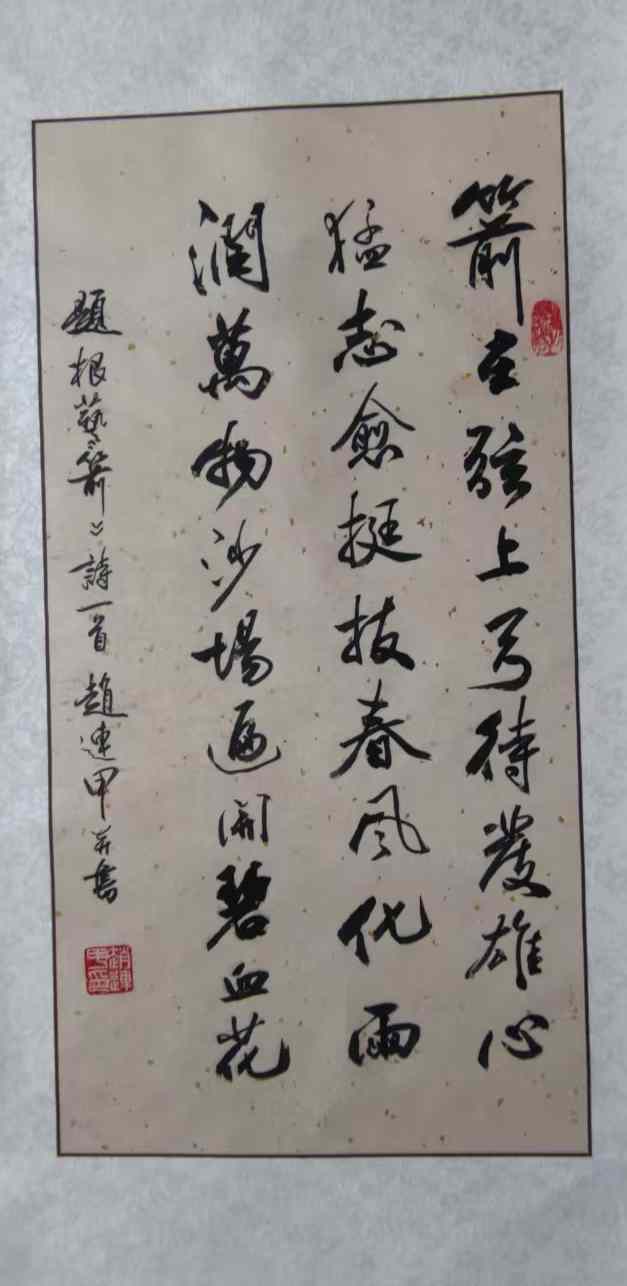 箭在弦上弓待發雄心
猛志愈挺拔春風化雨
潤萬物沙場遍開碧血花
題根藝《箭》詩一首 趙連甲并書
趙連甲印